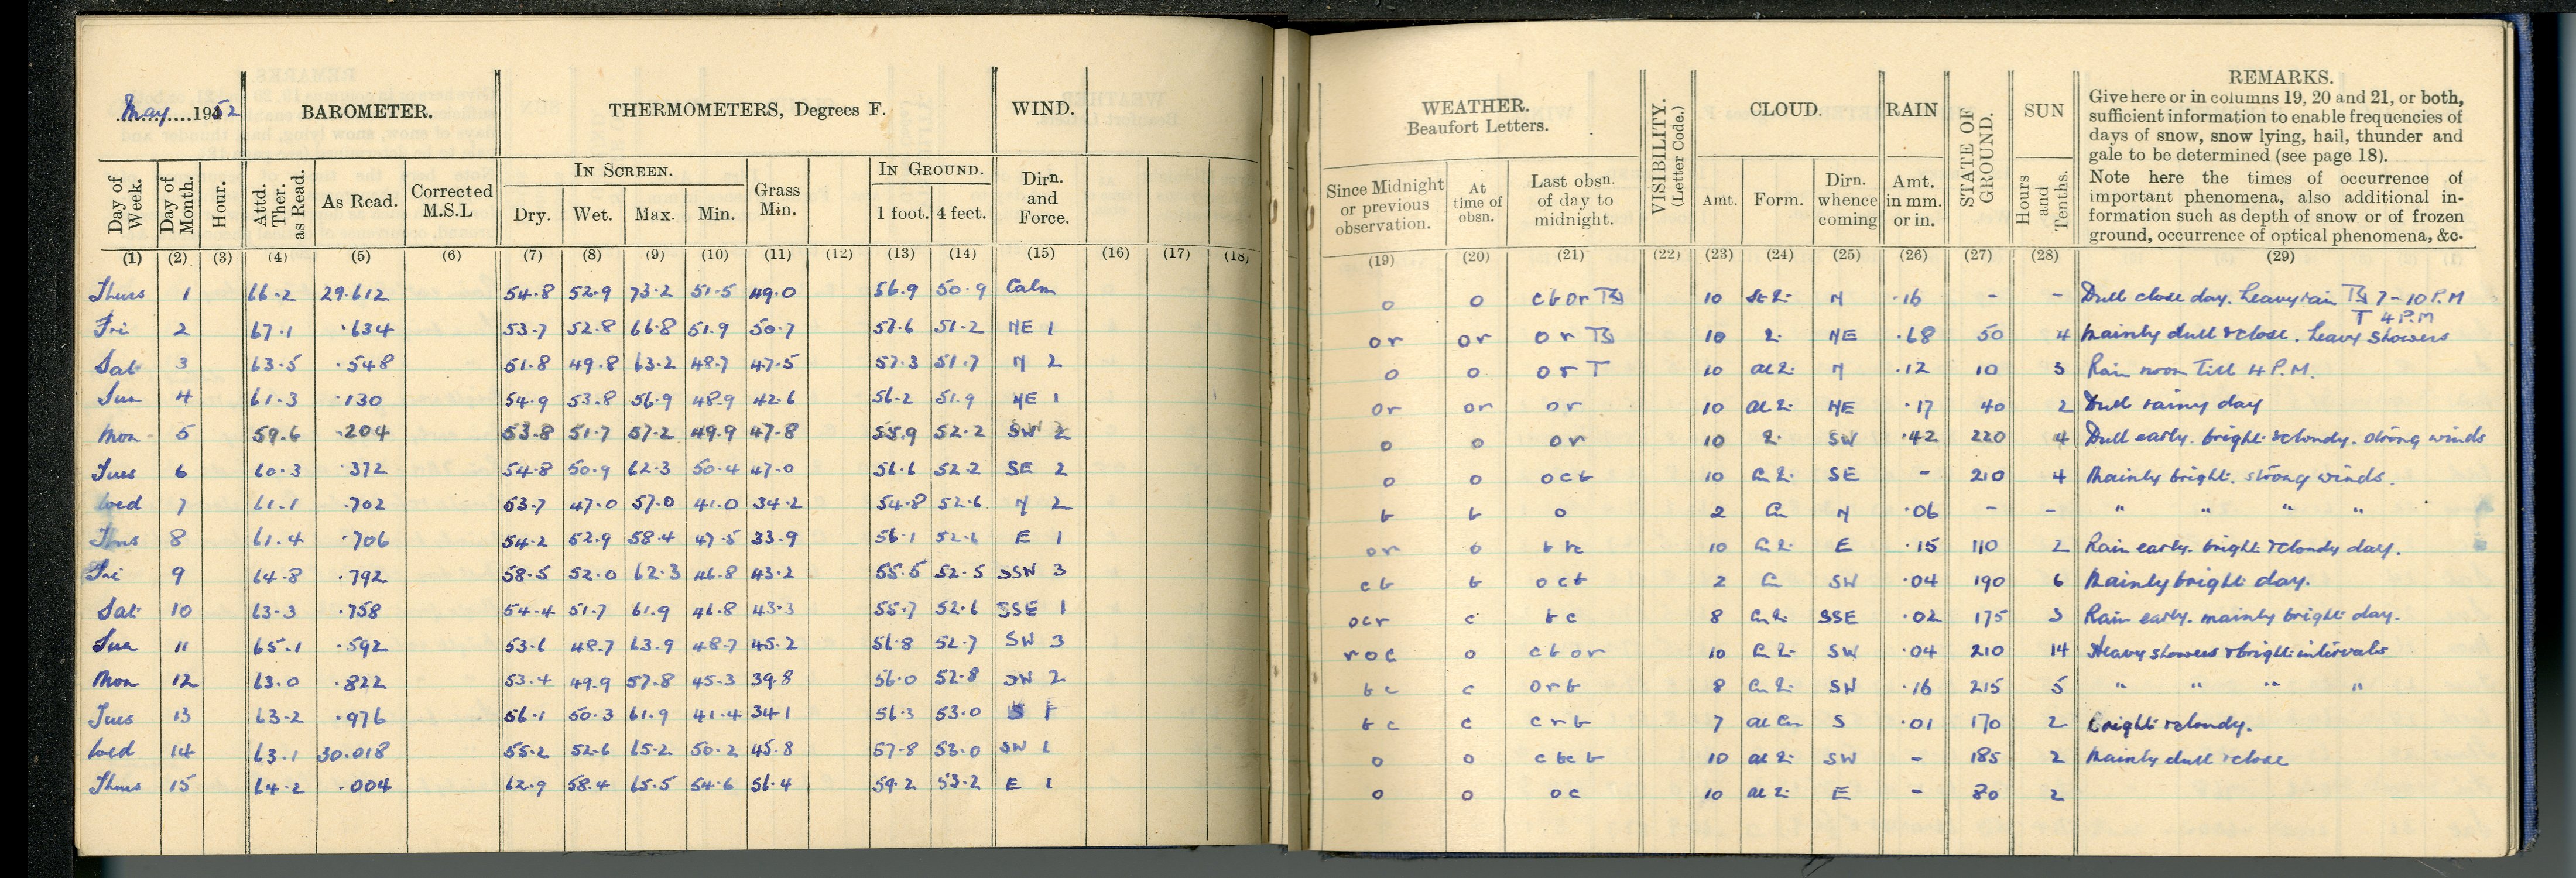 May....1952
BAROMETER.
THERMOMETERS, Degrees F.
WIND.
Day of Week.
Day of Month.
Hour.
Attd. Ther. as Read.
As Read.
Corrected M.S.L
IN SCREEN.
Dry. Wet. Max. Min.
Grass Min.
IN GROUND.
1 foot. 4 feet.
Dirn. and Force.
(1) (2) (3) (4) (5) (6) (7) (8) (9) (10) (11) (12) (13) (14) (15) (16) (17) (18)
Thurs 1 66.2 29.612 54.8 52.9 73.2 51.5 49.0 56.9 50.9 Calm
Fri 2 67.1 .634 53.7 52.8 66.8 51.9 50.7 57.6 51.2 NE 1
Sat 3 63.5 .548 51.8 49.8 63.2 48.7 47.5 57.3 51.7 N 2
Sun 4 61.3 .130 54.9 53.8 56.9 48.9 42.6 56.2 51.9 NE 1
Mon 5 59.6 .204 53.8 51.7 57.2 49.9 47.8 55.9 52.2 SW 2
Tues 6 60.3 .372 54.8 50.9 62.3 50.4 47.0 56.6 52.2 SE 2
Wed 7 61.1 .702 53.7 47.0 57.0 41.0 34.2 54.8 52.6 N 2
Thus 8 61.4 .706 54.2 52.9 58.4 47.5 33.9 56.1 52.6 E 1
Fri 9 64.8 .792 58.5 52.0 62.3 46.8 43.2 55.5 52.5 SSW 3
Sat 10 63.3 .758 54.4 51.7 61.9 46.8 43.3 55.7 52.6 SSE 1
Sun 11 65.1 .592 53.6 48.7 63.9 48.7 45.2 56.8 52.7 SW 3
Mon 12 63.0 .822 53.4 49.9 57.8 45.3 39.8 56.0 52.8 SW 2
Tues 13 63.2 .976 56.1 50.3 61.9 41.4 34.1 56.3 53.0 S 1
Wed 14 63.1 30.018 55.2 52.6 65.2 50.2 45.8 57.8 53.0 SW 1
Thus 15 64.2 .004 62.9 58.4 65.5 54.6 51.4 59.2 53.2 E 1
WEATHER.
Beaufort Letters.
VISIBILITY. (Letter Code.)
CLOUD.
RAIN
STATE OF GROUND.
SUN
REMARKS.
Give here or in columns 19, 20 and 21, or both,
sufficient information to enable frequencies of
days of snow, snow lying, hail, thunder and
gale to be determined (see page 18).
Note here the times of occurrence of
important phenomena, also additional in-
formation such as depth of snow or of frozen
ground, occurrence of optical phenomena, &c.
Since Midnight or previous observation.
At time of obsn.
Last obsn. of day to midnight.
Amt. Form.
Dirn. whence coming
Amt. in mm. or in.
Hours and Tenths.
(19) (20) (21) (22) (23) (24) (25) (26) (27) (28) (29)
o o c b or 10 N .16 - - Dull close day. heavy rain 7-10 P.M
T 4 P.M
or or or 10 NE .68 50 4 Mainly dull & close. heavy showers
o o or T 10 N .12 10 3 Rain noon Till 4 P.M.
or or or 10 NE .17 40 2 Dull rainy day
o o or 10 SW .42 220 4 Dull early. bright & cloudy. strong winds
o o o c b 10 SE - 210 4 Mainly bright. strong winds.
b b o 2 Cu N .06 - - " " " "
or o b bc 10 E .15 110 2 Rain early. bright & cloudy day.
c b b o c b 2 SW .04 190 6 Mainly bright day.
ocr c b c 8 SSE .02 175 3 Rain early. mainly bright day.
r o c o c b or 10 SW .04 210 14 Heavy showers & bright intervals
b c c or b 8 SW .16 215 5 " " " "
b c c c r b 7 S .01 170 2 bright & cloudy.
o o c bc b 10 SW - 185 2 Mainly dull & close
o o o c 10 E - 80 2